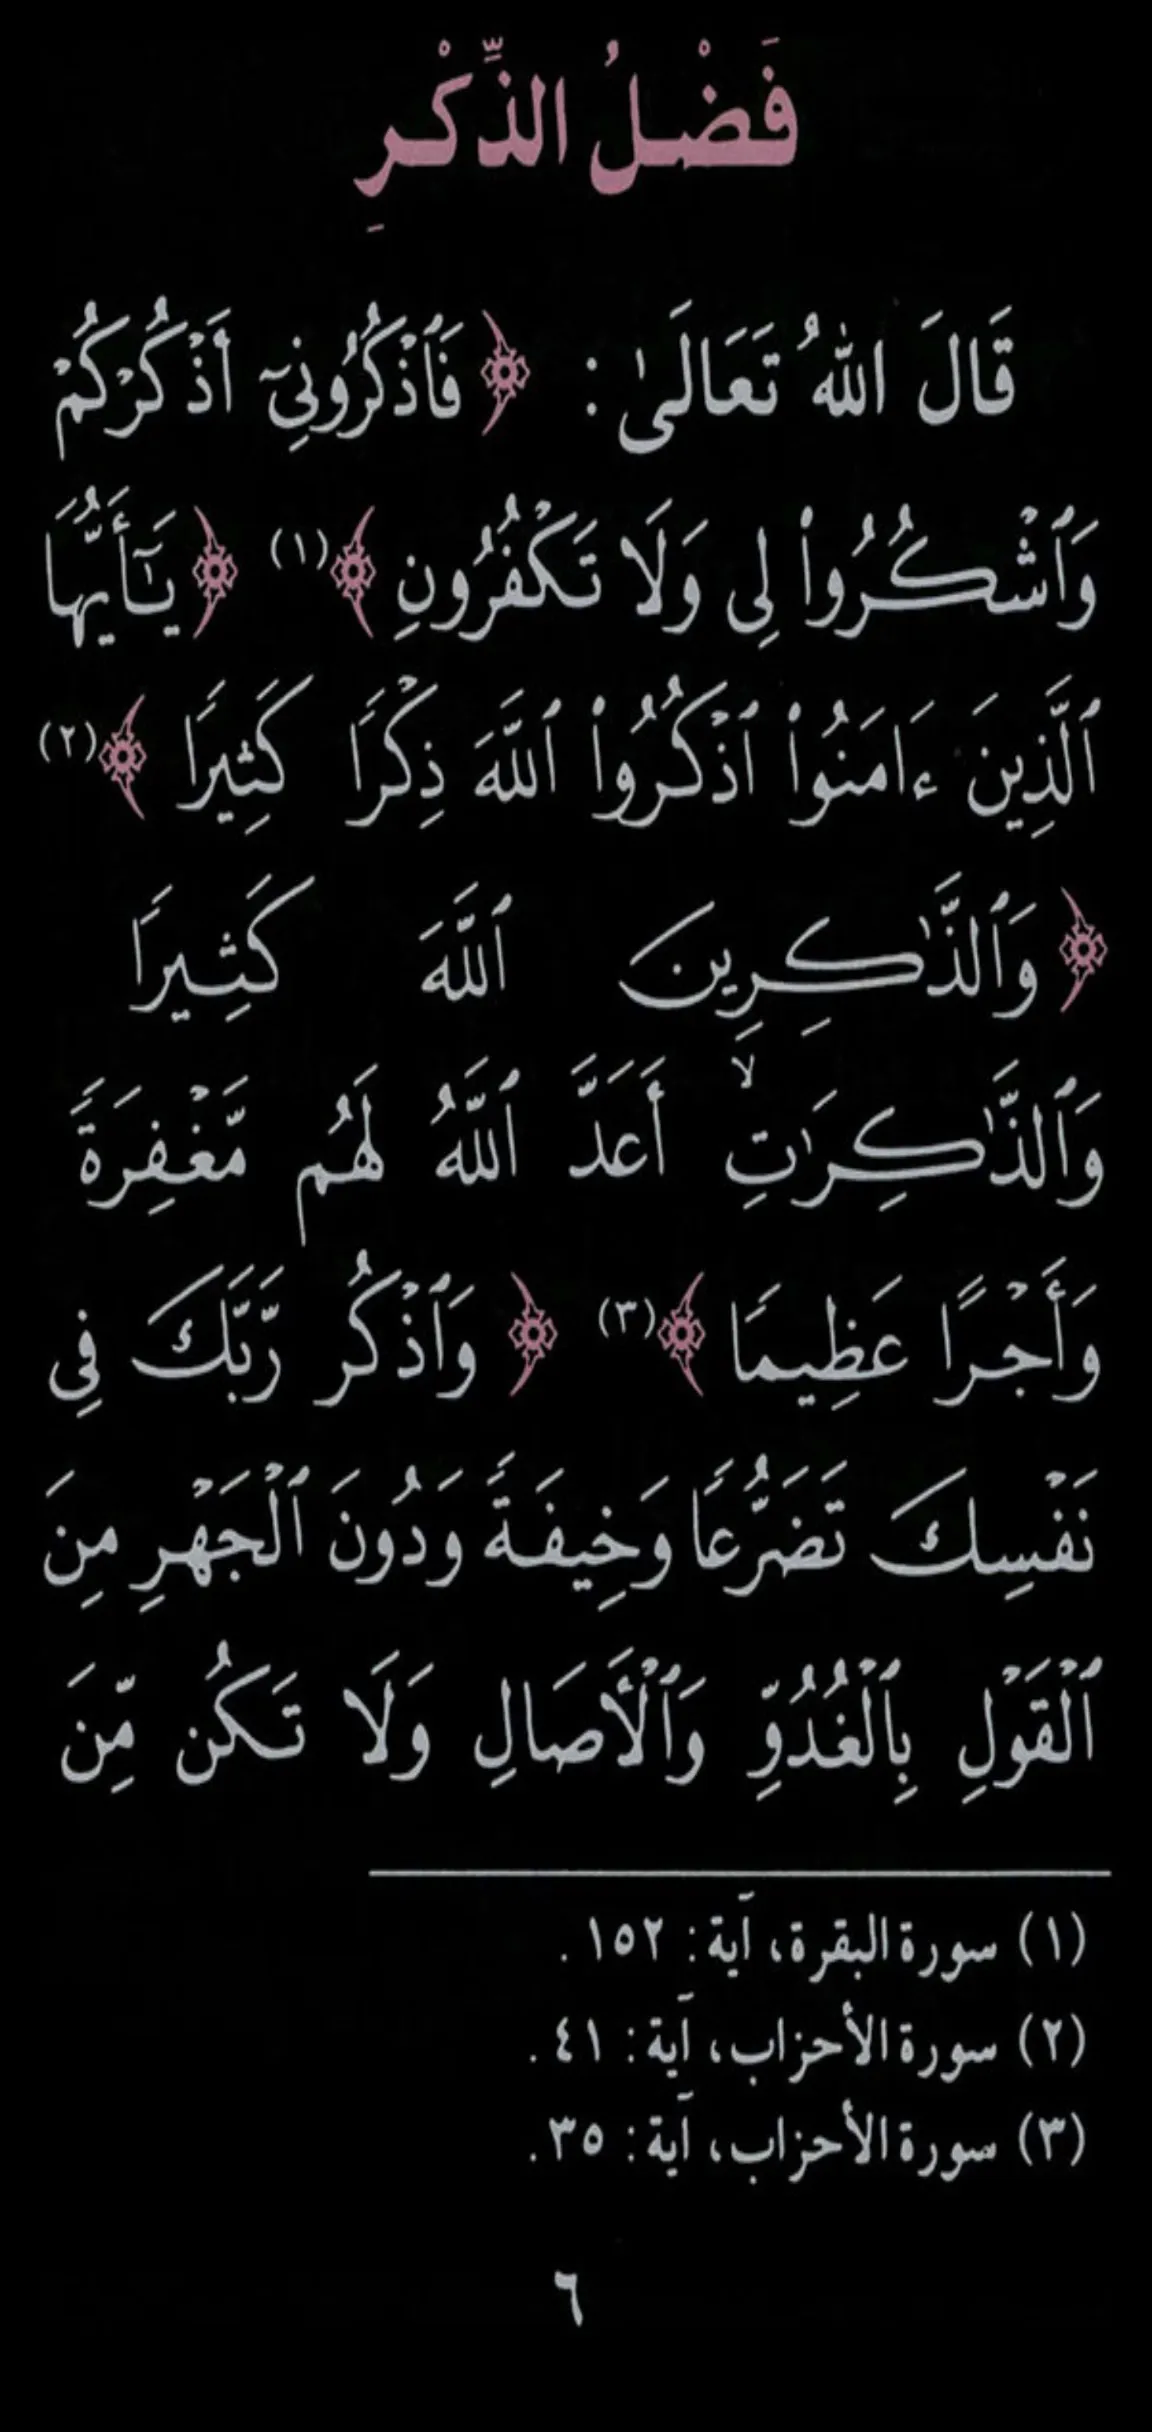 فَضْلُ الذِّكْرِ
قَالَ اللهُ تَعَالَىٰ: ﴿فَٱذْكُرُونِىٓ أَذْكُرْكُمْ
وَٱشْكُرُوا۟ لِى وَلَا تَكْفُرُونِ﴾(١) ﴿يَـٰٓأَيُّهَا
ٱلَّذِينَ ءَامَنُوا۟ ٱذْكُرُوا۟ ٱللَّهَ ذِكْرًا كَثِيرًا﴾(٢)
﴿وَٱلذَّٰكِرِينَ ٱللَّهَ كَثِيرًا
وَٱلذَّٰكِرَٰتِ ۙ أَعَدَّ ٱللَّهُ لَهُم مَّغْفِرَةً
وَأَجْرًا عَظِيمًا﴾(٣) ﴿وَٱذْكُر رَّبَّكَ فِى
نَفْسِكَ تَضَرُّعًا وَخِيفَةً وَدُونَ ٱلْجَهْرِ مِنَ
ٱلْقَوْلِ بِٱلْغُدُوِّ وَٱلْأَصَالِ وَلَا تَكُن مِّنَ
(١) سورة البقرة، آية: ١٥٢.
(٢) سورة الأحزاب، آية: ٤١.
(٣) سورة الأحزاب، آية: ٣٥.
٦